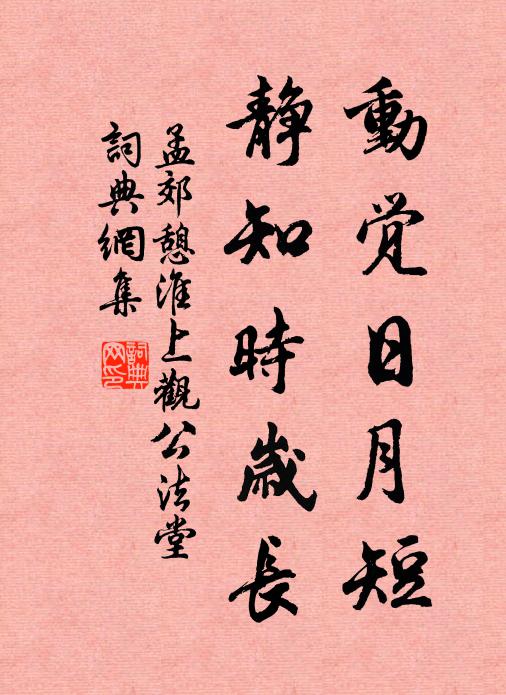 動覺日月短
静知時歲長
孟郊憩淮上觀公法堂
詞典網集
詞典網印